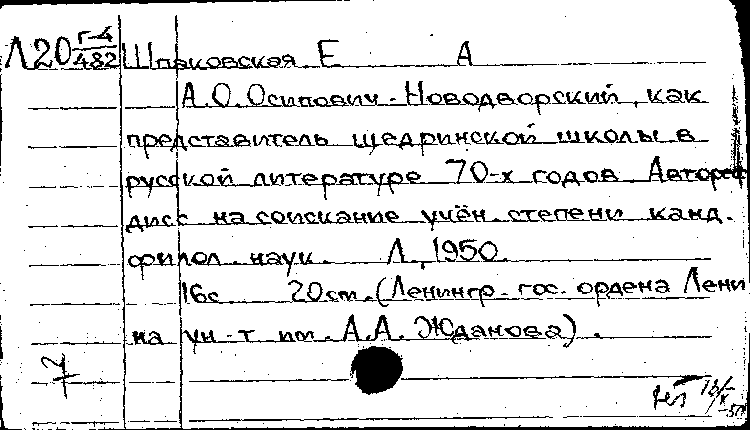 Л20 Г-4/482 Шпаковская Е А
А.О. Осипович-Новодворский, как
представитель щедринской школы в
русской литературе 70-х годов. Автореф
дисс на соискание учён. степени канд.
филол. наук. Л., 1950.
16с 20см. (Ленингр. гос. ордена Лени
на ун-т им. А.А. Жданова).
7